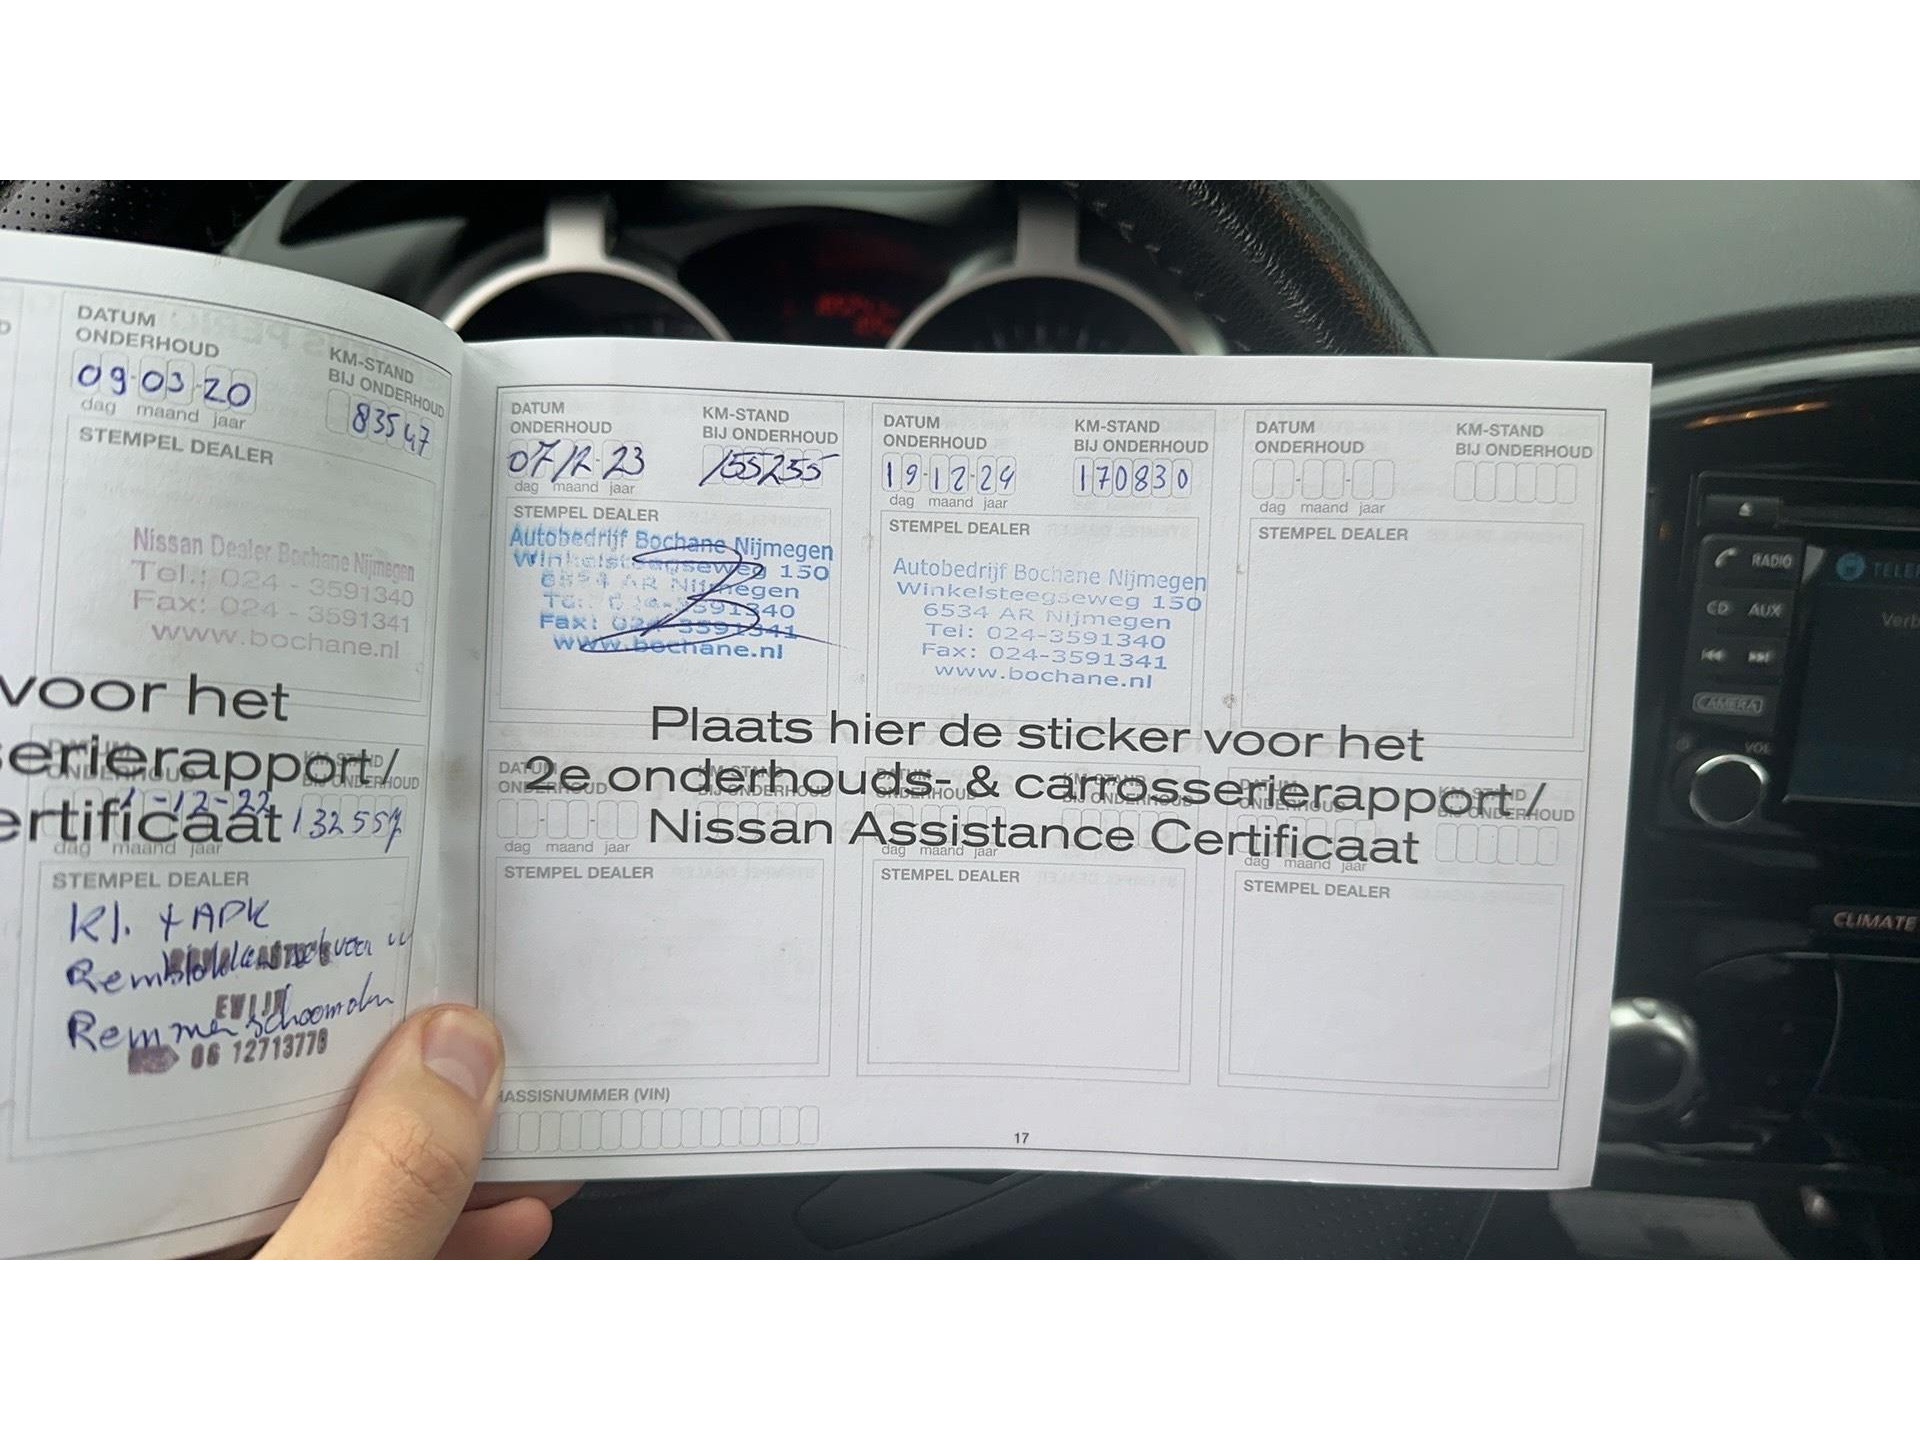 DATUM
ONDERHOUD
KM-STAND
BIJ ONDERHOUD
09-03-20
83547
dag maand jaar
STEMPEL DEALER
Nissan Dealer Bochane Nijmegen
Tel.: 024 - 3591340
Fax: 024 - 3591341
www.bochane.nl
voor het
serierapport/
ertificaat
KM-STAND
BIJ ONDERHOUD
1-12-22
132557
dag maand jaar
STEMPEL DEALER
Kl. + APK
voor
Remmen schoonmaken
EWIJK
06 12713778
DATUM
ONDERHOUD
KM-STAND
BIJ ONDERHOUD
07/12-23
155255
dag maand jaar
STEMPEL DEALER
Autobedrijf Bochane Nijmegen
Winkelsteegseweg 150
6534 AR Nijmegen
Tel: 024-3591340
Fax: 024-3591341
www.bochane.nl
DATUM
ONDERHOUD
KM-STAND
BIJ ONDERHOUD
19-12-24
170830
dag maand jaar
STEMPEL DEALER
Autobedrijf Bochane Nijmegen
Winkelsteegseweg 150
6534 AR Nijmegen
Tel: 024-3591340
Fax: 024-3591341
www.bochane.nl
DATUM
ONDERHOUD
KM-STAND
BIJ ONDERHOUD
dag maand jaar
STEMPEL DEALER
Plaats hier de sticker voor het
2e onderhouds- & carrosserierapport /
Nissan Assistance Certificaat
DATUM
ONDERHOUD
KM-STAND
BIJ ONDERHOUD
dag maand jaar
STEMPEL DEALER
DATUM
ONDERHOUD
KM-STAND
BIJ ONDERHOUD
dag maand jaar
STEMPEL DEALER
DATUM
ONDERHOUD
KM-STAND
BIJ ONDERHOUD
dag maand jaar
STEMPEL DEALER
HASSISNUMMER (VIN)
17
RADIO
CD AUX
CAMERA
VOL
TELEF
Verb
CLIMATE